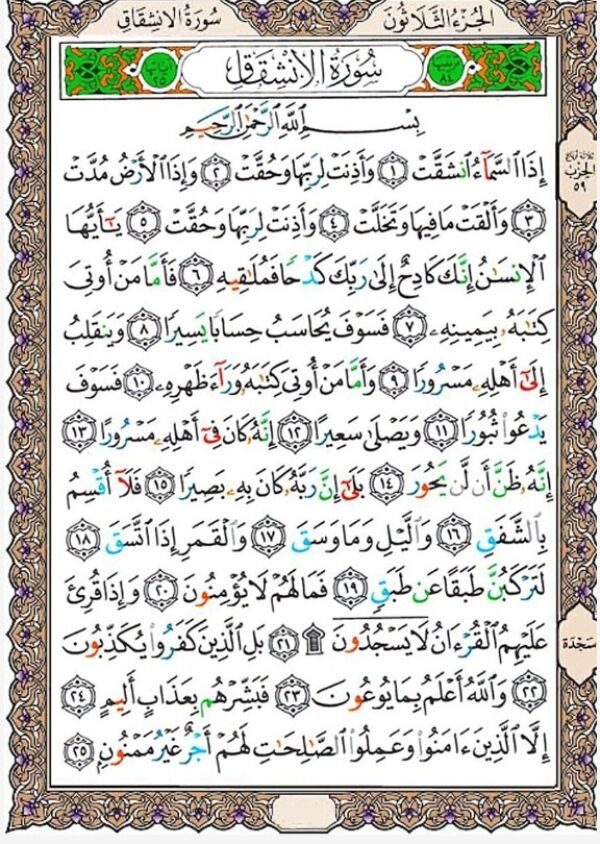 الجزء الثلاثون
سورة الانشقاق
سورة الانشقاق
بِسْمِ ٱللَّهِ ٱلرَّحْمَٰنِ ٱلرَّحِيمِ
إِذَا ٱلسَّمَآءُ ٱنشَقَّتْ ١ وَأَذِنَتْ لِرَبِّهَا وَحُقَّتْ ٢ وَإِذَا ٱلْأَرْضُ مُدَّتْ
٣ وَأَلْقَتْ مَا فِيهَا وَتَخَلَّتْ ٤ وَأَذِنَتْ لِرَبِّهَا وَحُقَّتْ ٥ يَٰٓأَيُّهَا
ٱلْإِنسَٰنُ إِنَّكَ كَادِحٌ إِلَىٰ رَبِّكَ كَدْحًا فَمُلَٰقِيهِ ٦ فَأَمَّا مَنْ أُوتِيَ
كِتَٰبَهُۥ بِيَمِينِهِۦ ٧ فَسَوْفَ يُحَاسَبُ حِسَابًا يَسِيرًا ٨ وَيَنقَلِبُ
إِلَىٰٓ أَهْلِهِۦ مَسْرُورًا ٩ وَأَمَّا مَنْ أُوتِيَ كِتَٰبَهُۥ وَرَآءَ ظَهْرِهِۦ ١٠ فَسَوْفَ
يَدْعُوا۟ ثُبُورًا ١١ وَيَصْلَىٰ سَعِيرًا ١٢ إِنَّهُۥ كَانَ فِىٓ أَهْلِهِۦ مَسْرُورًا ١٣
إِنَّهُۥ ظَنَّ أَن لَّن يَحُورَ ١٤ بَلَىٰٓ إِنَّ رَبَّهُۥ كَانَ بِهِۦ بَصِيرًا ١٥ فَلَآ أُقْسِمُ
بِٱلشَّفَقِ ١٦ وَٱلَّيْلِ وَمَا وَسَقَ ١٧ وَٱلْقَمَرِ إِذَا ٱتَّسَقَ ١٨
لَتَرْكَبُنَّ طَبَقًا عَن طَبَقٍ ١٩ فَمَا لَهُمْ لَا يُؤْمِنُونَ ٢٠ وَإِذَا قُرِئَ
عَلَيْهِمُ ٱلْقُرْءَانُ لَا يَسْجُدُونَ ۩ ٢١ بَلِ ٱلَّذِينَ كَفَرُوا۟ يُكَذِّبُونَ
٢٢ وَٱللَّهُ أَعْلَمُ بِمَا يُوعُونَ ٢٣ فَبَشِّرْهُم بِعَذَابٍ أَلِيمٍ ٢٤
إِلَّا ٱلَّذِينَ ءَامَنُوا۟ وَعَمِلُوا۟ ٱلصَّٰلِحَٰتِ لَهُمْ أَجْرٌ غَيْرُ مَمْنُونٍ ٢٥
الحزب
٥٩
سجدة